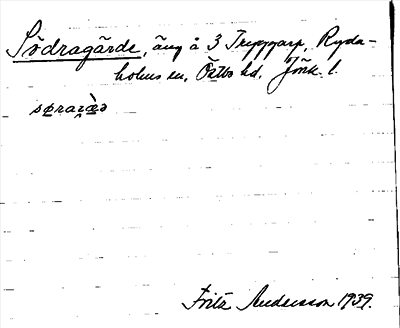 Södragärde, äng å 3 Trypparp, Ryda-
holms sn, Östbo hd, Jönk. l.
Fritz Andersson 1939.